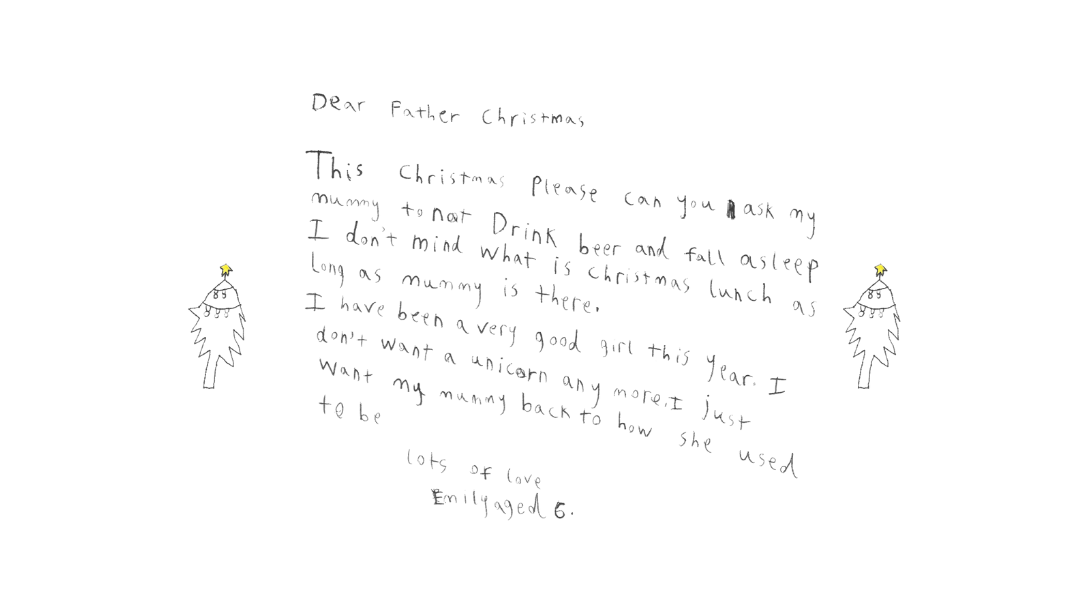 Dear Father Christmas
This Christmas Please can you ask my
mummy to not Drink beer and fall asleep
I don't mind what is christmas lunch as
long as mummy is there.
I have been a very good girl this year. I
don't want a unicorn any more. I just
want my mummy back to how she used
to be
lots of love
Emily aged 6.